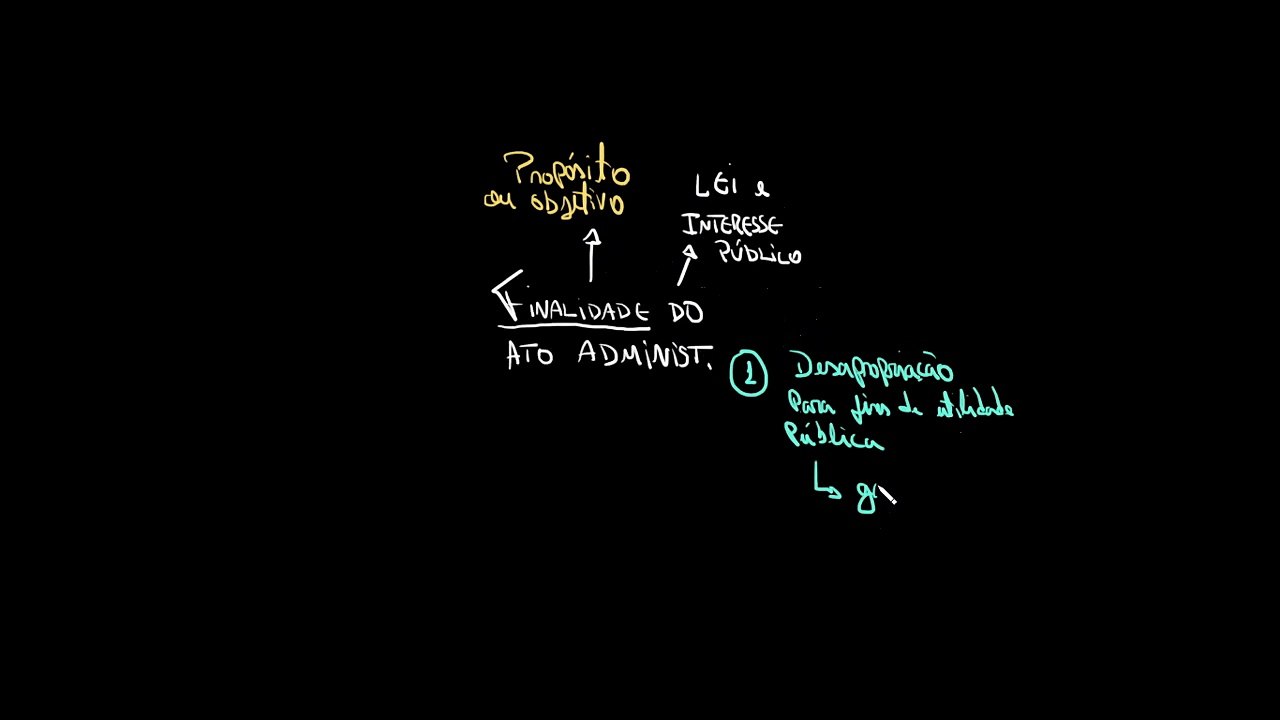 Propósito
ou objetivo
LEi e
INTERESSE
PÚBLiCO
FINALiDADE DO
ATO ADMiNiST.
1 Desapropriação
Para fins de utilidade
Pública